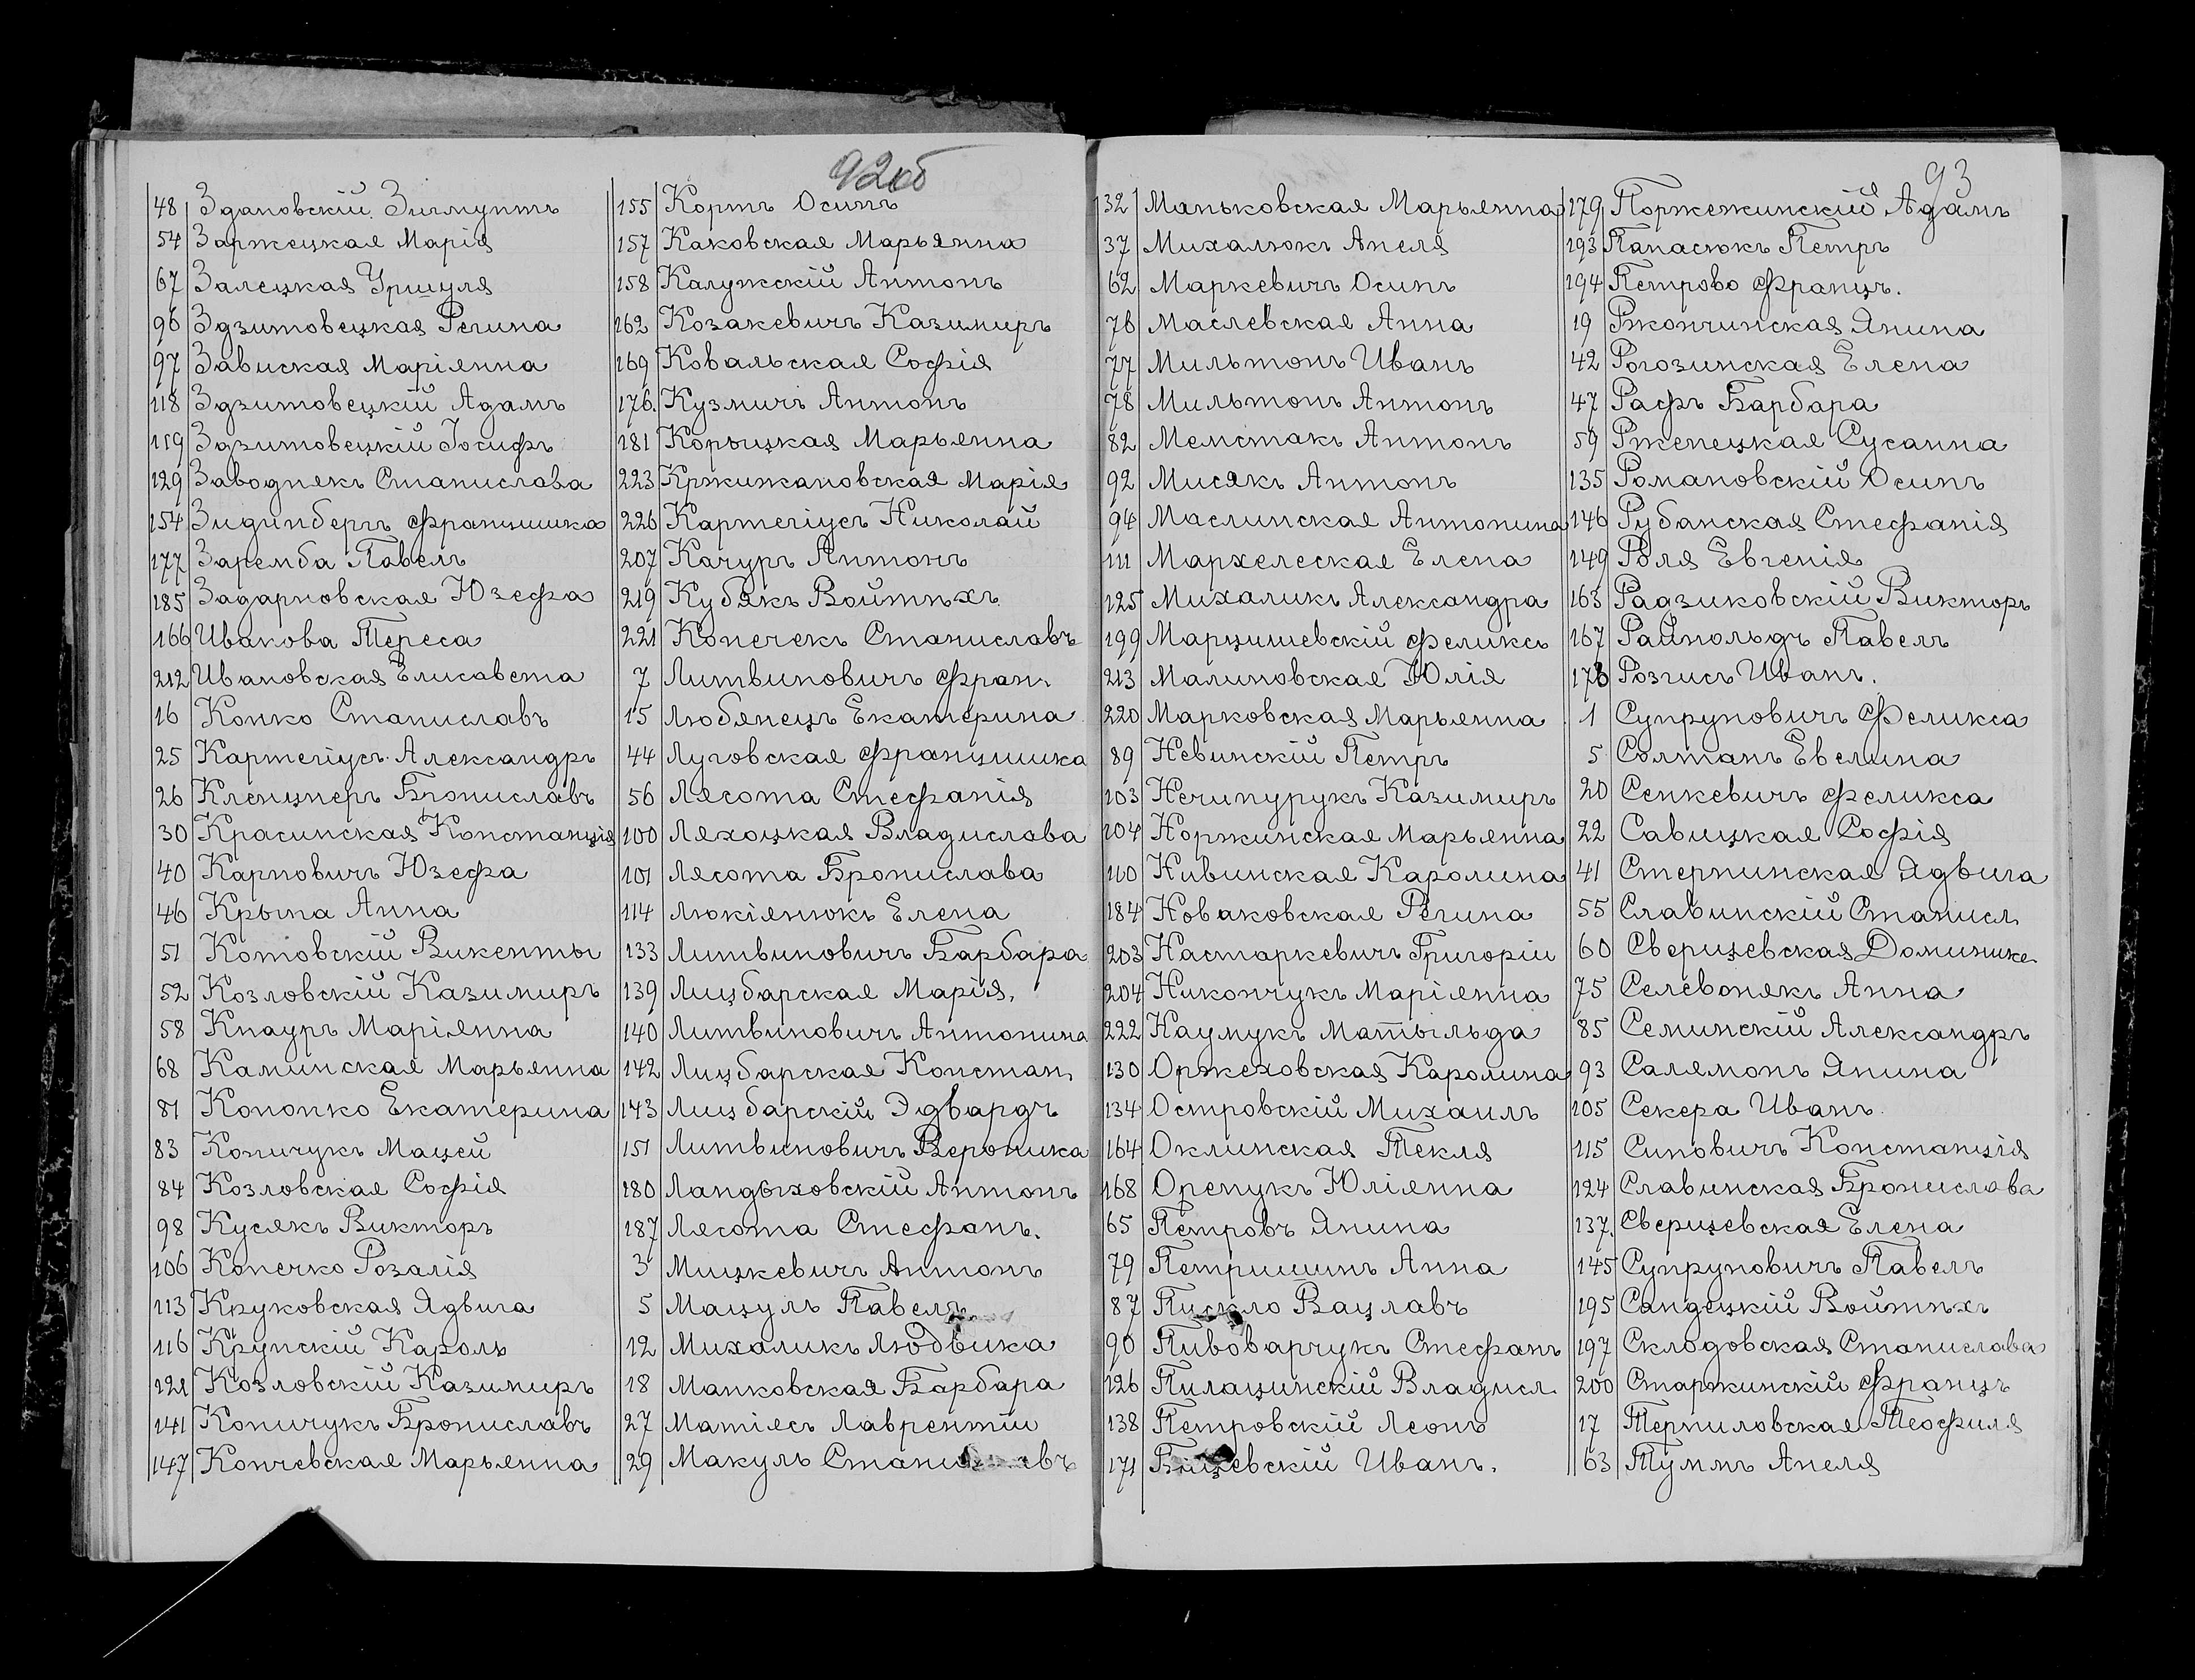 92об
48 Здановскій Зигмунтъ
54 Заржецкая Марія
67 Залецкая Уршуля
96 Здзитовецкая Регина
97 Завиская Маріянна
118 Здзитовецкій Адамъ
119 Здзитовецкій Іосифъ
129 Заводнякъ Станислава
154 Зидинбергъ Францишка
177 Заремба Павелъ
185 Задарновская Юзефа
166 Ивакова Тереса
212 Ивановская Елисавета
16 Конко Станиславъ
25 Картегіусъ Александръ
26 Кленцнеръ Брониславъ
30 Красинская Констанція
40 Карповичъ Юзефа
46 Крыпа Анна
51 Котовскій Викенты
52 Козловскій Казимиръ
58 Кнауръ Маріянна
68 Каминская Марьянна
81 Конопко Екатерина
83 Коничукъ Мацей
84 Козловская Софія
98 Кусякъ Викторъ
106 Конечко Розалія
113 Круковская Ядвига
116 Крупскій Кароль
121 Козловскій Казимиръ
141 Коничукъ Брониславъ
147 Кончевская Марьянна
155 Кортъ Осипъ
157 Каковская Марьянна
158 Калужскій Антонъ
162 Козакевичъ Казимиръ
169 Ковальская Софія
176. Кузмичъ Антонъ
181 Корыцкая Марьянна
223 Кржижановская Марія
226 Картегіусъ Николай
207 Качуръ Антонъ
219 Кубякъ Войтѣхъ
221 Конечекъ Станиславъ
7 Литвиновичъ Фран.
15 Любянецъ Екатерина
44 Луговская Францишка
56 Лясота Стефанія
100 Ляхоцкая Владислава
101 Лясота Бронислава
114 Люкіянюкъ Елена
133 Литвиновичъ Барбара
139 Лицбарская Марія.
140 Литвиновичъ Антонина
142 Лицбарская Констан.
143 Лицбарскій Эдвардъ
151 Литвиновичъ Вероника
180 Ландыховскій Антонъ
187 Лясота Стефанъ.
3 Мицкевичъ Антонъ
5 Мацулъ Павелъ
12 Михаликъ Людвика
18 Манковская Барбара
27 Матіясъ Лаврентій
29 Макулъ Станиславъ
93
132 Маньковская Марьянна
37 Михалюкъ Анеля
62 Маркевичъ Осипъ
76 Маслевская Анна
77 Мильтонъ Иванъ
78 Мильтонъ Антонъ
82 Мемстакъ Антонъ
92 Мисякъ Антонъ
94 Маслинская Антонина
111 Мархелеская Елена
125 Михаликъ Александра
199 Марцишевскій Феликсъ
213 Малиновская Юлія
220 Марковская Марьянна
89 Невинскій Петръ
103 Нечипурукъ Казимиръ
104 Норжинская Марьянна
110 Нивинская Каролина
184 Новаковская Регина
203 Настаркевичъ Григорій
204 Никончукъ Маріянна
222 Наумукъ Матыльда
130 Оржеховская Каролина
134 Островскій Михаилъ
164 Оклинская Текля
168 Орепукъ Юліянна
65 Петровъ Янина
79 Петришинъ Анна
87 Пискло Вацлавъ
90 Пивоварчукъ Стефанъ
126 Пилацинскій Владисл.
138 Петровскій Леонъ
171 Бищевскій Иванъ.
179 Поржежинскій Адамъ
193 Панасюкъ Петръ
194 Петрово Францъ.
19 Ржончинская Янина
42 Рогозинская Елена
47 Рафъ Барбара
59 Ржепецкая Сусанна
135 Романовскій Осипъ
146 Рубанская Стефанія
149 Роля Евгенія
163 Радзиковскій Викторъ
167 Райнольдъ Павелъ
178 Розгисъ Иванъ.
1 Супруновичъ Феликса
5 Солтанъ Евелина
20 Сенкевичъ Феликса
22 Савицкая Софія
41 Стернинская Ядвига
55 Славинскій Станисл.
60 Сверщевская Доминике
75 Селевонякъ Анна
85 Семинскій Александръ
93 Салямонъ Янина
105 Секера Иванъ
115 Синовичъ Констанція
124 Славинская Бронислава
137. Сверщевская Елена
145 Супруновичъ Павелъ
195 Сандецкій Войтѣхъ
197 Склодовская Станислава
200 Старжинскій Францъ
17 Терпиловская Теофиля
63 Туммъ Анеля